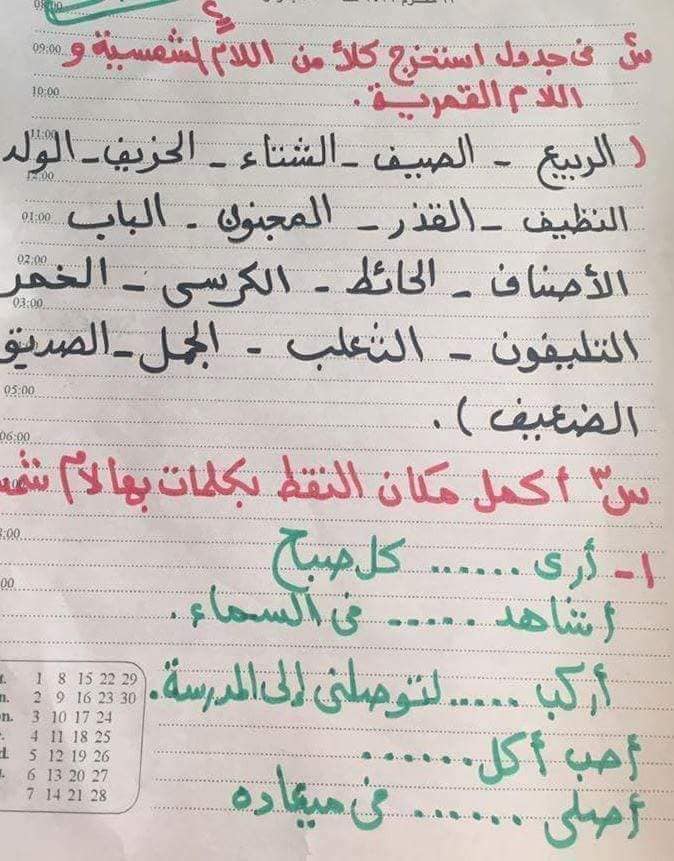 08:00
09:00
س٢ فى جدول استخرج كلاً من اللام الشمسية و
10:00
اللام القمرية.
11:00
( الربيع - الصيف - الشتاء - الخريف - الولد
12:00
النظيف - القذر - المجنون - الباب
01:00
02:00
الأصناف - الحائط - الكرسى - الخمر
03:00
التليفون - الثعلب - الجمل - الصديق
05:00
الضعيف ).
06:00
س٣ أكمل مكان النقط بكلمات بها لام شمس
:00
١- أرى ...... كل صبح
00
أشاهد ...... فى السماء.
أركب ..... لتوصلنى إلى المدرسة.
أحب أكل .......
أصلى ...... فى ميعاده
1 8 15 22 29
2 9 16 23 30
3 10 17 24
4 11 18 25
5 12 19 26
6 13 20 27
7 14 21 28